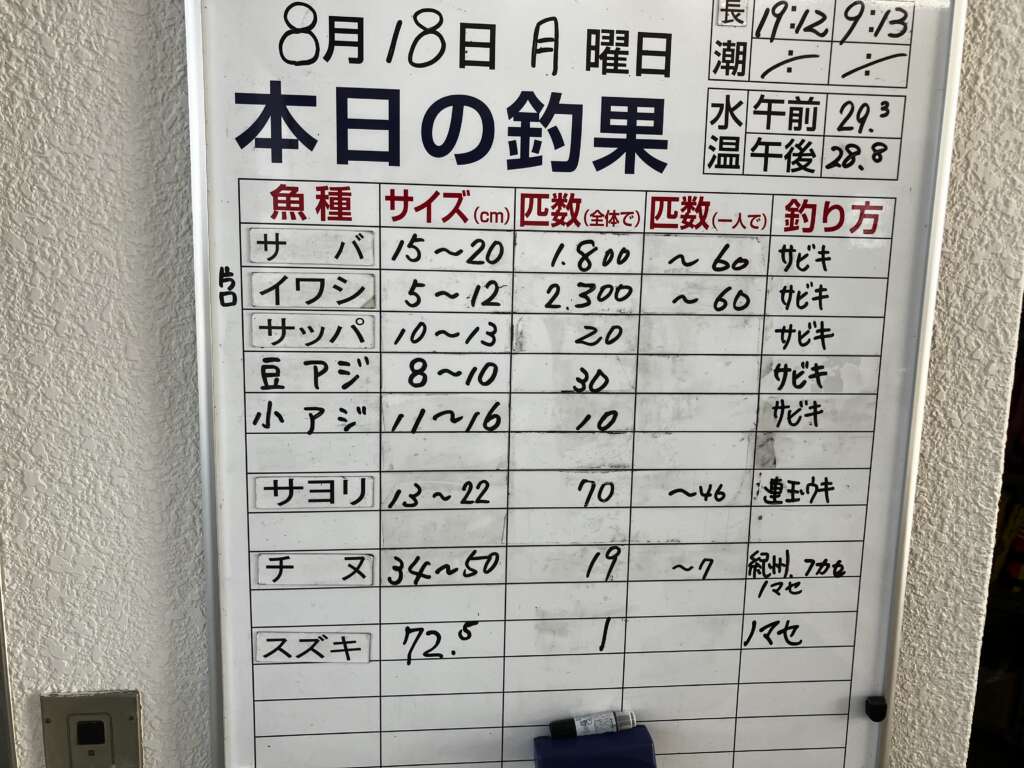 8月18日 月曜日
長潮 19:12 9:13
本日の釣果
水温 午前 29.3
午後 28.8
魚種 サイズ(cm) 匹数(全体で) 匹数(一人で) 釣り方
サバ 15～20 1.800 ～60 サビキ
片口イワシ 5～12 2.300 ～60 サビキ
サッパ 10～13 20 サビキ
豆アジ 8～10 30 サビキ
小アジ 11～16 10 サビキ
サヨリ 13～22 70 ～46 連玉ウキ
チヌ 34～50 19 ～7 紀州、フカセ
ノマセ
スズキ 72.5 1 ノマセ